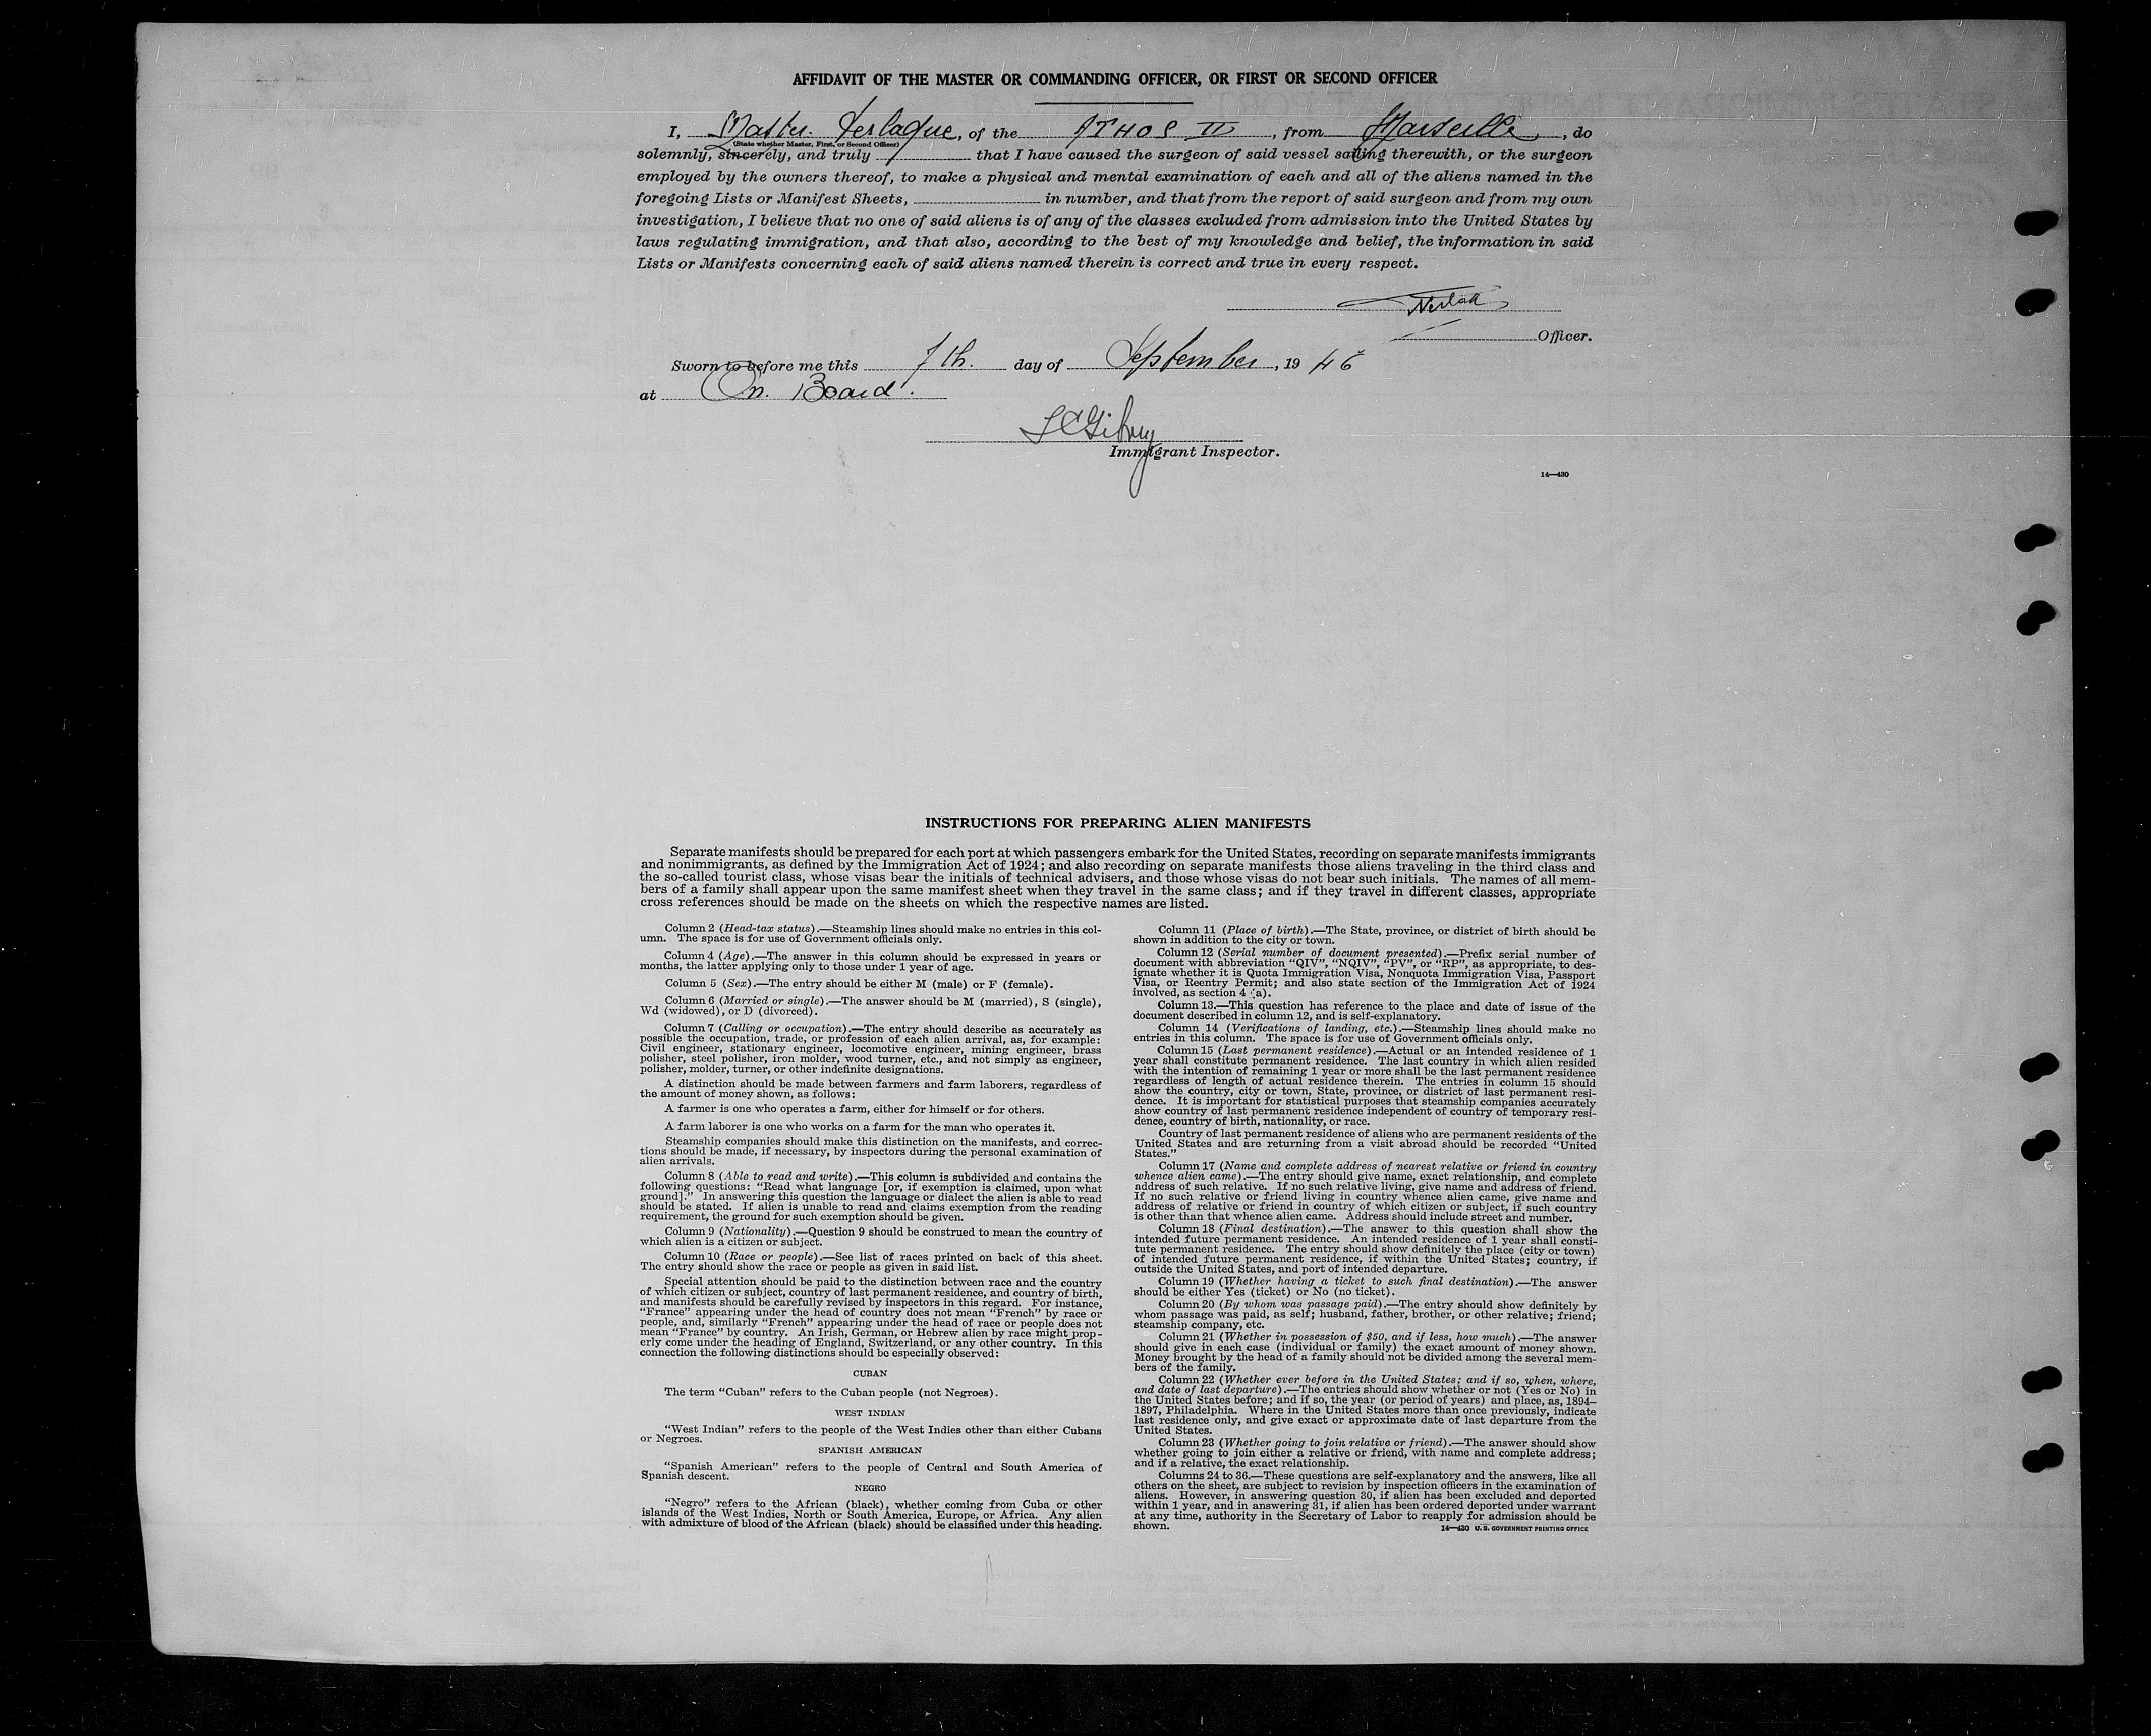 AFFIDAVIT OF THE MASTER OR COMMANDING OFFICER, OR FIRST OR SECOND OFFICER
I, Master. , of the ATHOS II , from Marseille , do
(State whether Master, First, or Second Officer)
solemnly, sincerely, and truly that I have caused the surgeon of said vessel sailing therewith, or the surgeon
employed by the owners thereof, to make a physical and mental examination of each and all of the aliens named in the
foregoing Lists or Manifest Sheets, in number, and that from the report of said surgeon and from my own
investigation, I believe that no one of said aliens is of any of the classes excluded from admission into the United States by
laws regulating immigration, and that also, according to the best of my knowledge and belief, the information in said
Lists or Manifests concerning each of said aliens named therein is correct and true in every respect.
Officer.
Sworn to before me this 7th. day of September , 19 46
at On. Board.
Immigrant Inspector.
14—430
INSTRUCTIONS FOR PREPARING ALIEN MANIFESTS
Separate manifests should be prepared for each port at which passengers embark for the United States, recording on separate manifests immigrants
and nonimmigrants, as defined by the Immigration Act of 1924; and also recording on separate manifests those aliens traveling in the third class and
the so-called tourist class, whose visas bear the initials of technical advisers, and those whose visas do not bear such initials. The names of all mem-
bers of a family shall appear upon the same manifest sheet when they travel in the same class; and if they travel in different classes, appropriate
cross references should be made on the sheets on which the respective names are listed.
Column 2 (Head-tax status).—Steamship lines should make no entries in this col-
umn. The space is for use of Government officials only.
Column 4 (Age).—The answer in this column should be expressed in years or
months, the latter applying only to those under 1 year of age.
Column 5 (Sex).—The entry should be either M (male) or F (female).
Column 6 (Married or single).—The answer should be M (married), S (single),
Wd (widowed), or D (divorced).
Column 7 (Calling or occupation).—The entry should describe as accurately as
possible the occupation, trade, or profession of each alien arrival, as, for example:
Civil engineer, stationary engineer, locomotive engineer, mining engineer, brass
polisher, steel polisher, iron molder, wood turner, etc., and not simply as engineer,
polisher, molder, turner, or other indefinite designations.
A distinction should be made between farmers and farm laborers, regardless of
the amount of money shown, as follows:
A farmer is one who operates a farm, either for himself or for others.
A farm laborer is one who works on a farm for the man who operates it.
Steamship companies should make this distinction on the manifests, and correc-
tions should be made, if necessary, by inspectors during the personal examination of
alien arrivals.
Column 8 (Able to read and write).—This column is subdivided and contains the
following questions: “Read what language [or, if exemption is claimed, upon what
ground].” In answering this question the language or dialect the alien is able to read
should be stated. If alien is unable to read and claims exemption from the reading
requirement, the ground for such exemption should be given.
Column 9 (Nationality).—Question 9 should be construed to mean the country of
which alien is a citizen or subject.
Column 10 (Race or people).—See list of races printed on back of this sheet.
The entry should show the race or people as given in said list.
Special attention should be paid to the distinction between race and the country
of which citizen or subject, country of last permanent residence, and country of birth,
and manifests should be carefully revised by inspectors in this regard. For instance,
“France” appearing under the head of country does not mean “French” by race or
people, and, similarly “French” appearing under the head of race or people does not
mean “France” by country. An Irish, German, or Hebrew alien by race might prop-
erly come under the heading of England, Switzerland, or any other country. In this
connection the following distinctions should be especially observed:
CUBAN
The term “Cuban” refers to the Cuban people (not Negroes).
WEST INDIAN
“West Indian” refers to the people of the West Indies other than either Cubans
or Negroes.
SPANISH AMERICAN
“Spanish American” refers to the people of Central and South America of
Spanish descent.
NEGRO
“Negro” refers to the African (black), whether coming from Cuba or other
islands of the West Indies, North or South America, Europe, or Africa. Any alien
with admixture of blood of the African (black) should be classified under this heading.
Column 11 (Place of birth).—The State, province, or district of birth should be
shown in addition to the city or town.
Column 12 (Serial number of document presented).—Prefix serial number of
document with abbreviation “QIV”, “NQIV”, “PV”, or “RP”, as appropriate, to des-
ignate whether it is Quota Immigration Visa, Nonquota Immigration Visa, Passport
Visa, or Reentry Permit; and also state section of the Immigration Act of 1924
involved, as section 4 (a).
Column 13.—This question has reference to the place and date of issue of the
document described in column 12, and is self-explanatory.
Column 14 (Verifications of landing, etc.).—Steamship lines should make no
entries in this column. The space is for use of Government officials only.
Column 15 (Last permanent residence).—Actual or an intended residence of 1
year shall constitute permanent residence. The last country in which alien resided
with the intention of remaining 1 year or more shall be the last permanent residence
regardless of length of actual residence therein. The entries in column 15 should
show the country, city or town, State, province, or district of last permanent resi-
dence. It is important for statistical purposes that steamship companies accurately
show country of last permanent residence independent of country of temporary resi-
dence, country of birth, nationality, or race.
Country of last permanent residence of aliens who are permanent residents of the
United States and are returning from a visit abroad should be recorded “United
States.”
Column 17 (Name and complete address of nearest relative or friend in country
whence alien came).—The entry should give name, exact relationship, and complete
address of such relative. If no such relative living, give name and address of friend.
If no such relative or friend living in country whence alien came, give name and
address of relative or friend in country of which citizen or subject, if such country
is other than that whence alien came. Address should include street and number.
Column 18 (Final destination).—The answer to this question shall show the
intended future permanent residence. An intended residence of 1 year shall consti-
tute permanent residence. The entry should show definitely the place (city or town)
of intended future permanent residence, if within the United States; country, if
outside the United States, and port of intended departure.
Column 19 (Whether having a ticket to such final destination).—The answer
should be either Yes (ticket) or No (no ticket).
Column 20 (By whom was passage paid).—The entry should show definitely by
whom passage was paid, as self; husband, father, brother, or other relative; friend;
steamship company, etc.
Column 21 (Whether in possession of $50, and if less, how much).—The answer
should give in each case (individual or family) the exact amount of money shown.
Money brought by the head of a family should not be divided among the several mem-
bers of the family.
Column 22 (Whether ever before in the United States; and if so, when, where,
and date of last departure).—The entries should show whether or not (Yes or No) in
the United States before; and if so, the year (or period of years) and place, as, 1894–
1897, Philadelphia. Where in the United States more than once previously, indicate
last residence only, and give exact or approximate date of last departure from the
United States.
Column 23 (Whether going to join relative or friend).—The answer should show
whether going to join either a relative or friend, with name and complete address;
and if a relative, the exact relationship.
Columns 24 to 36.—These questions are self-explanatory and the answers, like all
others on the sheet, are subject to revision by inspection officers in the examination of
aliens. However, in answering question 30, if alien has been excluded and deported
within 1 year, and in answering 31, if alien has been ordered deported under warrant
at any time, authority in the Secretary of Labor to reapply for admission should be
shown.
14—430 U. S. GOVERNMENT PRINTING OFFICE